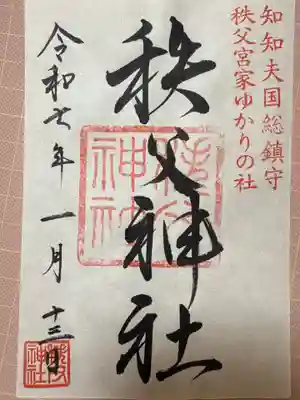 知知夫国総鎮守
秩父宮家ゆかりの社
秩父神社
令和七年 一月 十三日
秩父神社
秩父神社